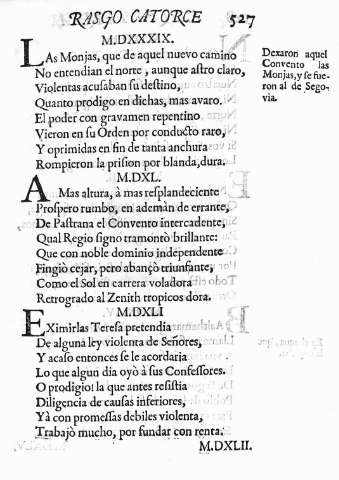 RASGO CATORCE 527
M.DXXXIX.
LAs Monjas, que de aquel nuevo camino
No entendian el norte, aunque astro claro,
Violentas acusaban su destino,
Quanto prodigo en dichas, mas avaro.
El poder con gravamen repentino
Vieron en su Orden por conducto raro,
Y oprimidas en fin de tanta anchura
Rompieron la prision por blanda, dura.
Dexaron aquel
Convento las
Monjas, y se fue-
ron al de Sego-
via.
M.DXL.
A Mas altura, à mas resplandeciente
Prospero rumbo, en ademàn de errante,
De Pastrana el Convento intercadente,
Qual Regio signo tramontò brillante:
Que con noble dominio independente
Fingiò cejar, pero abançò triunfante,
Como el Sol en carrera voladora
Retrogrado al Zenith tropicos dora.
M.DXLI
EXimirlas Teresa pretendia
De alguna ley violenta de Señores,
Y acaso entonces se le acordaria
Lo que algun dia oyò à sus Confessores.
O prodigio! la que antes resistia
Diligencia de causas inferiores,
Yà con promessas debiles violenta,
Trabajò mucho, por fundar con renta.
M.DXLII.